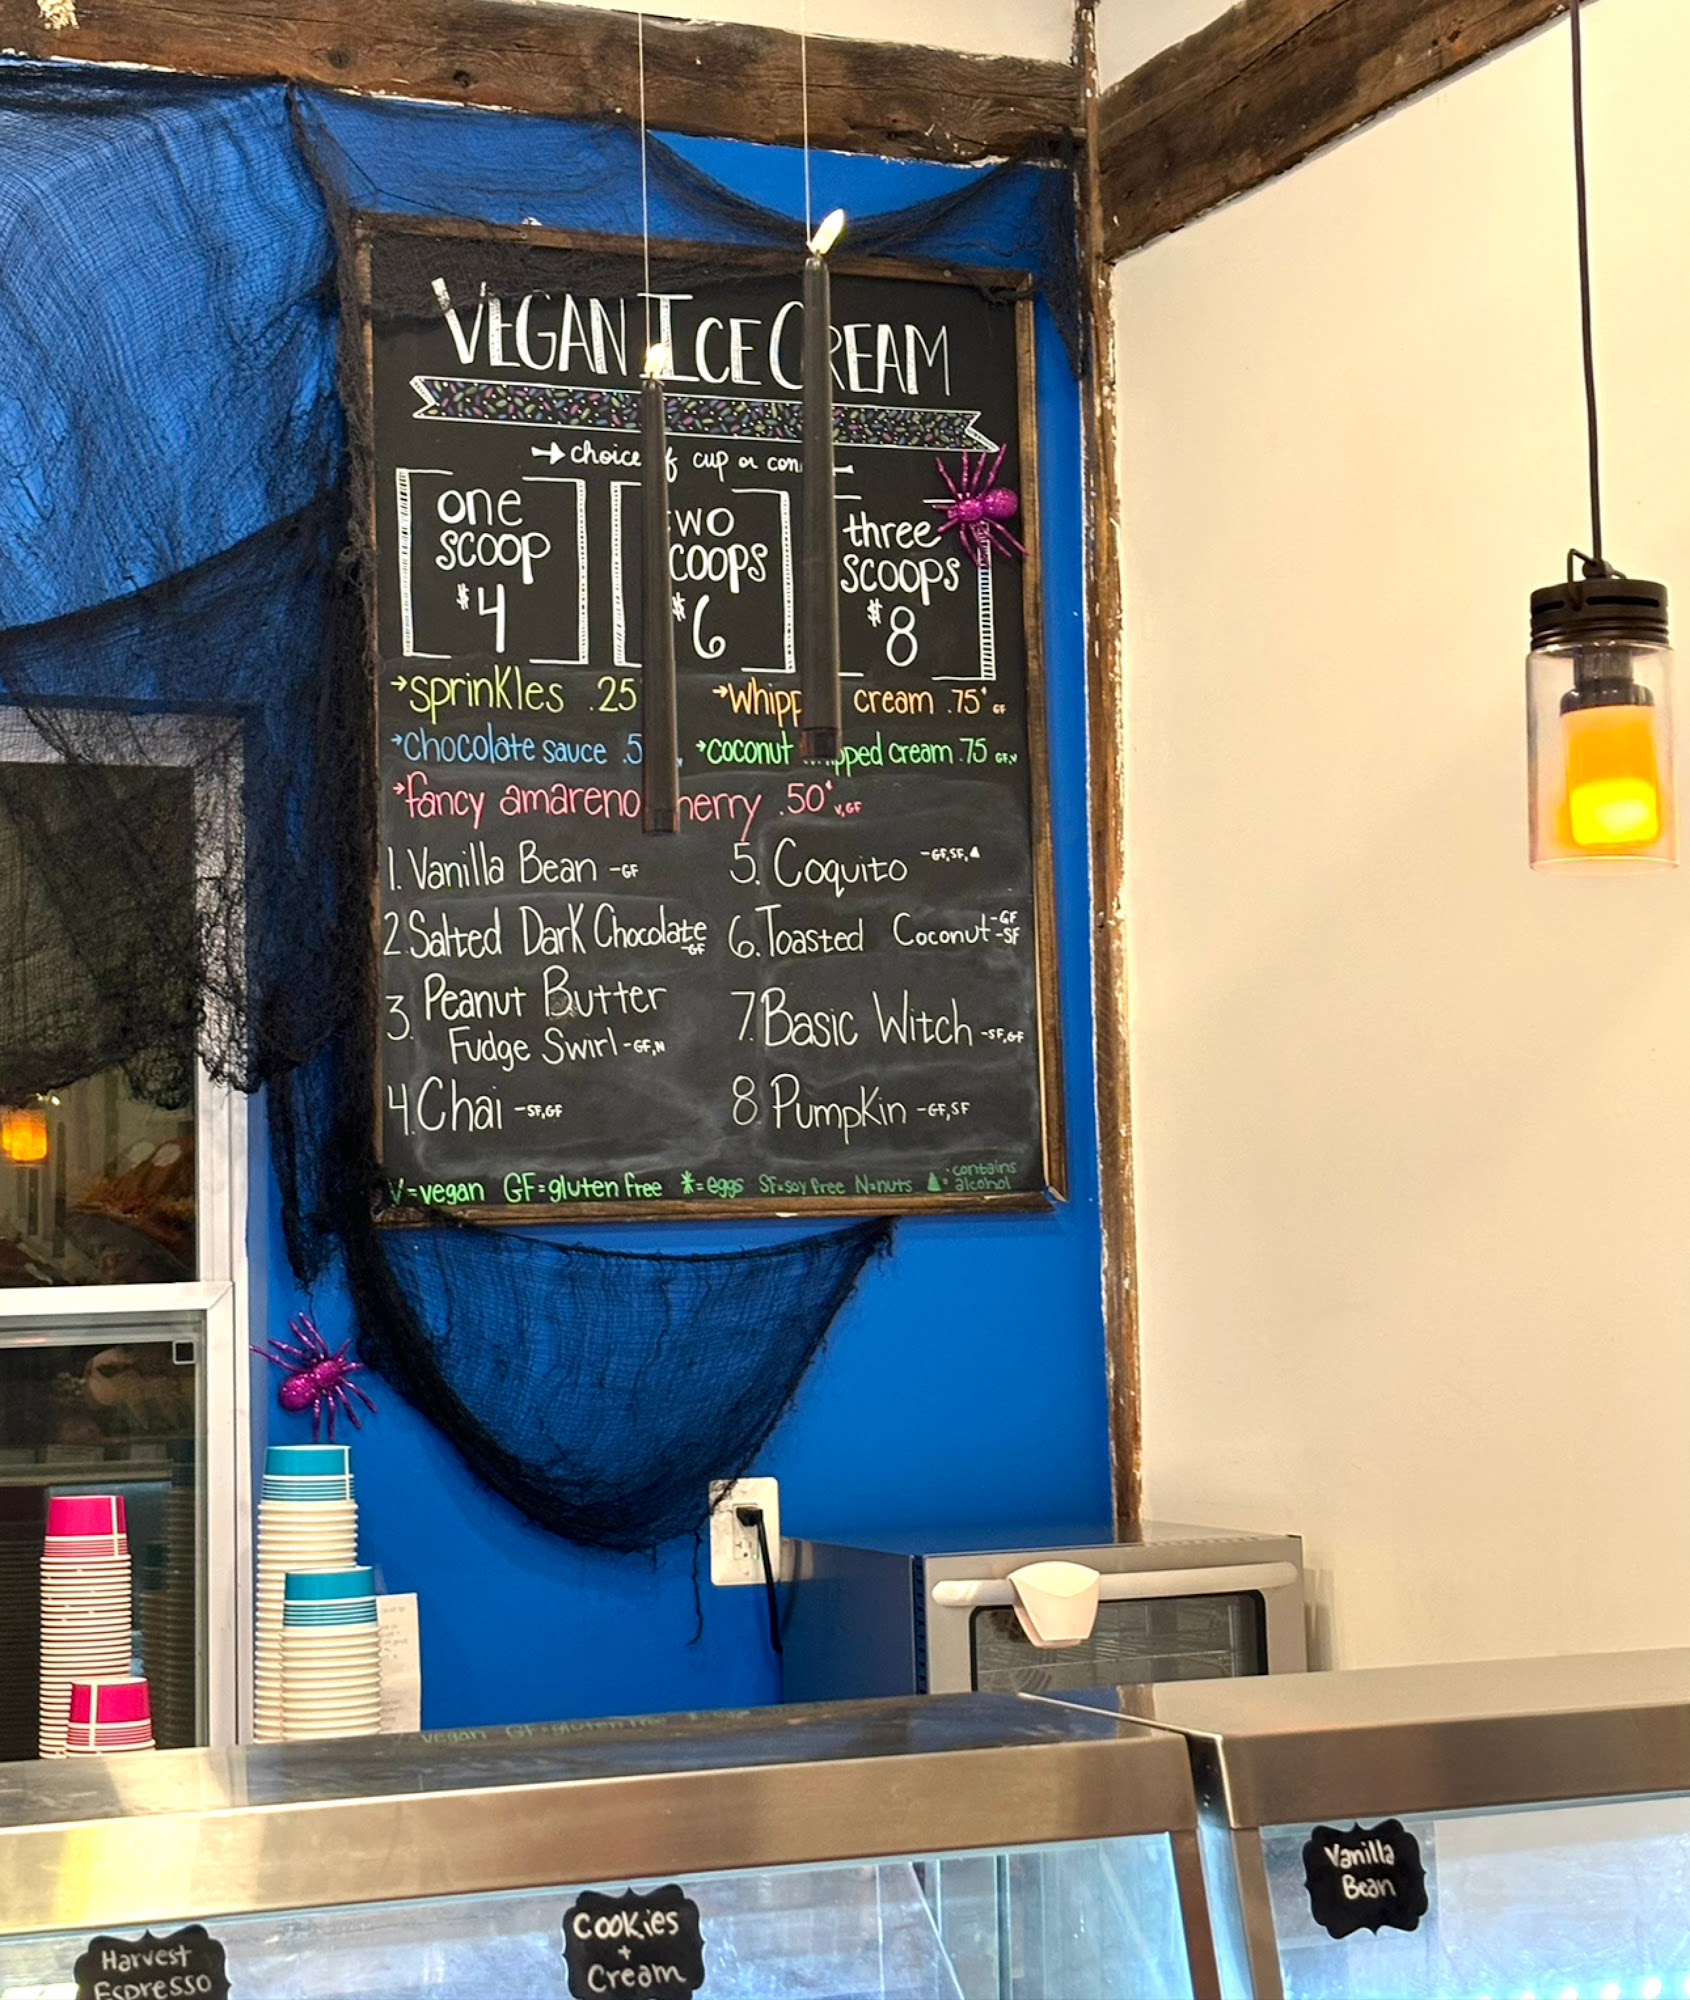 VEGAN ICE CREAM
choice of cup or
one
scoop
$4
scoops
$6
three
scoops
$8
→sprinkles .25
→whipped cream .75¢ GF
→chocolate sauce
→coconut whipped cream .75 GF,V
→fancy amareno cherry .50¢ V,GF
1. Vanilla Bean -GF
2. Salted Dark Chocolate -GF
3. Peanut Butter
Fudge Swirl -GF,N
4. Chai -SF,GF
5. Coquito -GF,SF,▲
6. Toasted Coconut -GF -SF
7. Basic Witch -SF,GF
8. Pumpkin -GF,SF
V=vegan GF=gluten free *=eggs SF=soy free N=nuts ▲=contains alcohol
Harvest
Espresso
Cookies
+
Cream
Vanilla
Bean